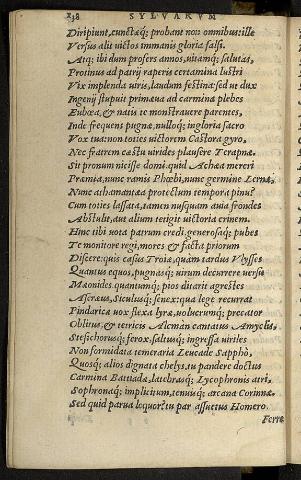 238 SYLVARVM
Diripiunt, cunctæq; probant non omnibus: ille
Versus alii victos immanis gloria falsi.
Atq; ibi dum profers annos, vitamq; salutas,
Protinus ad patrÿ raperis certamina lustri
Vix implenda viris, laudum festina: sed ut dux
Ingenij stupuit primæua ad carmina plebes
Eubœa, & natis te monstrauere parentes,
Inde frequens pugnæ, nulloq; ingloria sacro
Vox tua: non toties victorem Castora gyro,
Nec fratrem cæstu virides plausere Terapnæ.
Sit pronum vicisse domi. quid Achæa mereri
Præmia, nunc ramis Phœbi, nunc germine Lernæ,
Nunc athamantæa protectum tempora pinu?
Cum toties lassata, tamen nusquam auia frondes
Abstulit, aut alium tetigit victoria crinem.
Hinc tibi vota patrum credi. generosaq; pubes
Te monitore regi, mores & facta priorum
Discere: quis casus Troiæ, quàm tardus Vlysses
Quantus equos, pugnasq; virum decurrere versu
Mæonides quantumq; pios ditarit agrestes
Ascræus, Siculusq; senex: qua lege recurrat
Pindaricæ vox flexa lyræ, volucrumq; precator
Oblitus, & tetricis Alcman cantatus Amyclis,
Stesichorusq; ferox, saltusq; ingressa viriles
Non formidata temeraria Leucade Sapphò,
Quosq; alios dignata chelys, tu pandere doctus
Carmina Battiadæ, latebrasq; Lycophronis atri,
Sophronaq; implicitum, tenuisq; arcana Corinnæ.
Sed quid parua loquor? tu par assuetus Homero
Ferre